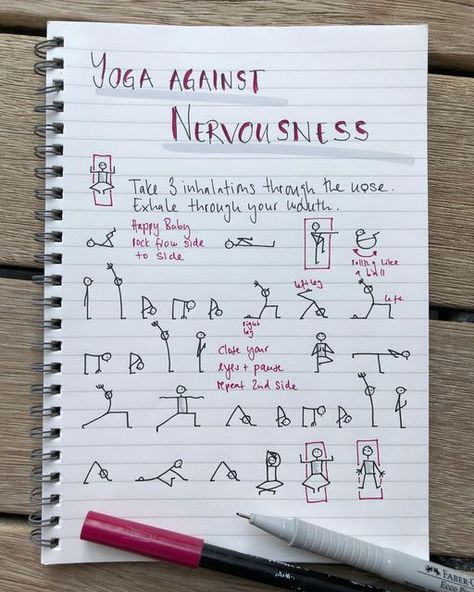 YOGA AGAINST
NERVOUSNESS
Take 3 inhalations through the nose.
Exhale through your mouth.
Happy Baby
rock from side
to side
rolling like
a ball
left leg
left
right
leg
Close your
eyes + pause
repeat 2nd side
FABER-C
Ecco